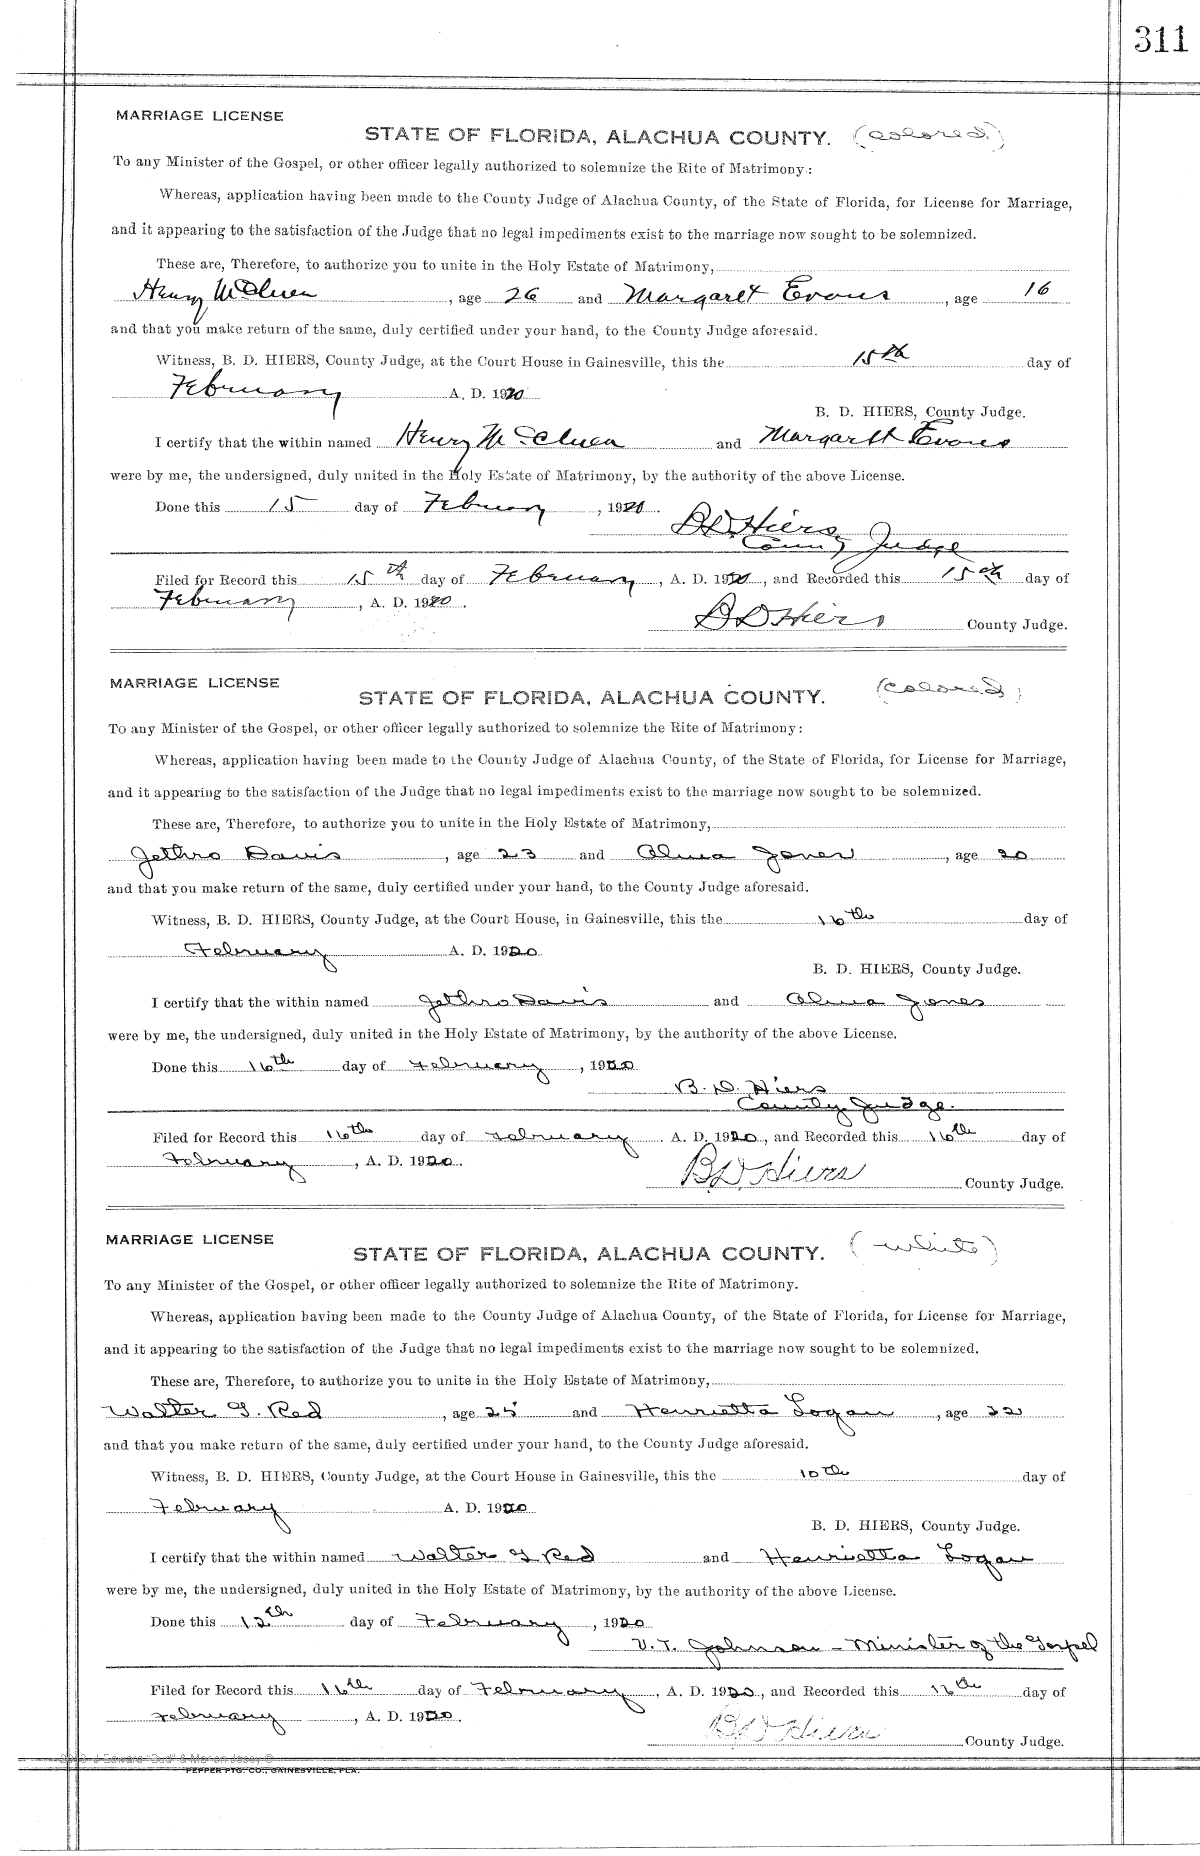 311
MARRIAGE LICENSE
STATE OF FLORIDA, ALACHUA COUNTY. (colored)
To any Minister of the Gospel, or other officer legally authorized to solemnize the Rite of Matrimony:
Whereas, application having been made to the County Judge of Alachua County, of the State of Florida, for License for Marriage,
and it appearing to the satisfaction of the Judge that no legal impediments exist to the marriage now sought to be solemnized.
These are, Therefore, to authorize you to unite in the Holy Estate of Matrimony,
Henry , age 26 and Margaret Evans , age 16
and that you make return of the same, duly certified under your hand, to the County Judge aforesaid.
Witness, B. D. HIERS, County Judge, at the Court House in Gainesville, this the 15th day of
February A. D. 1920
B. D. HIERS, County Judge.
I certify that the within named Henry and Margarett Evans
were by me, the undersigned, duly united in the Holy Estate of Matrimony, by the authority of the above License.
Done this 15 day of February , 1920.
B D Hiers
County Judge
Filed for Record this 15th day of February , A. D. 1920, and Recorded this 15th day of
February , A. D. 1920.
B D Hiers County Judge.
MARRIAGE LICENSE
STATE OF FLORIDA, ALACHUA COUNTY. (colored)
To any Minister of the Gospel, or other officer legally authorized to solemnize the Rite of Matrimony:
Whereas, application having been made to the County Judge of Alachua County, of the State of Florida, for License for Marriage,
and it appearing to the satisfaction of the Judge that no legal impediments exist to the marriage now sought to be solemnized.
These are, Therefore, to authorize you to unite in the Holy Estate of Matrimony,
Jethro Davis , age 23 and Alma Jones , age 20
and that you make return of the same, duly certified under your hand, to the County Judge aforesaid.
Witness, B. D. HIERS, County Judge, at the Court House, in Gainesville, this the 16th day of
February A. D. 1920
B. D. HIERS, County Judge.
I certify that the within named Jethro Davis and Alma Jones
were by me, the undersigned, duly united in the Holy Estate of Matrimony, by the authority of the above License.
Done this 16th day of February , 1920
B. D. Hiers
County Judge.
Filed for Record this 16th day of February . A. D. 1920, and Recorded this 16th day of
February , A. D. 1920.
B D Hiers County Judge.
MARRIAGE LICENSE
STATE OF FLORIDA, ALACHUA COUNTY. (white)
To any Minister of the Gospel, or other officer legally authorized to solemnize the Rite of Matrimony.
Whereas, application having been made to the County Judge of Alachua County, of the State of Florida, for License for Marriage,
and it appearing to the satisfaction of the Judge that no legal impediments exist to the marriage now sought to be solemnized.
These are, Therefore, to authorize you to unite in the Holy Estate of Matrimony,
Walter G. Red , age 25 and Henrietta Logan , age 22
and that you make return of the same, duly certified under your hand, to the County Judge aforesaid.
Witness, B. D. HIERS, County Judge, at the Court House in Gainesville, this the 10th day of
February A. D. 1920
B. D. HIERS, County Judge.
I certify that the within named Walter G Red and Henrietta Logan
were by me, the undersigned, duly united in the Holy Estate of Matrimony, by the authority of the above License.
Done this 12th day of February , 1920
V. T. Johnson - Minister of the Gospel
Filed for Record this 16th day of February , A. D. 1920, and Recorded this 16th day of
February , A. D. 1920.
B D Hiers County Judge.
PEPPER PTG. CO., GAINESVILLE, FLA.